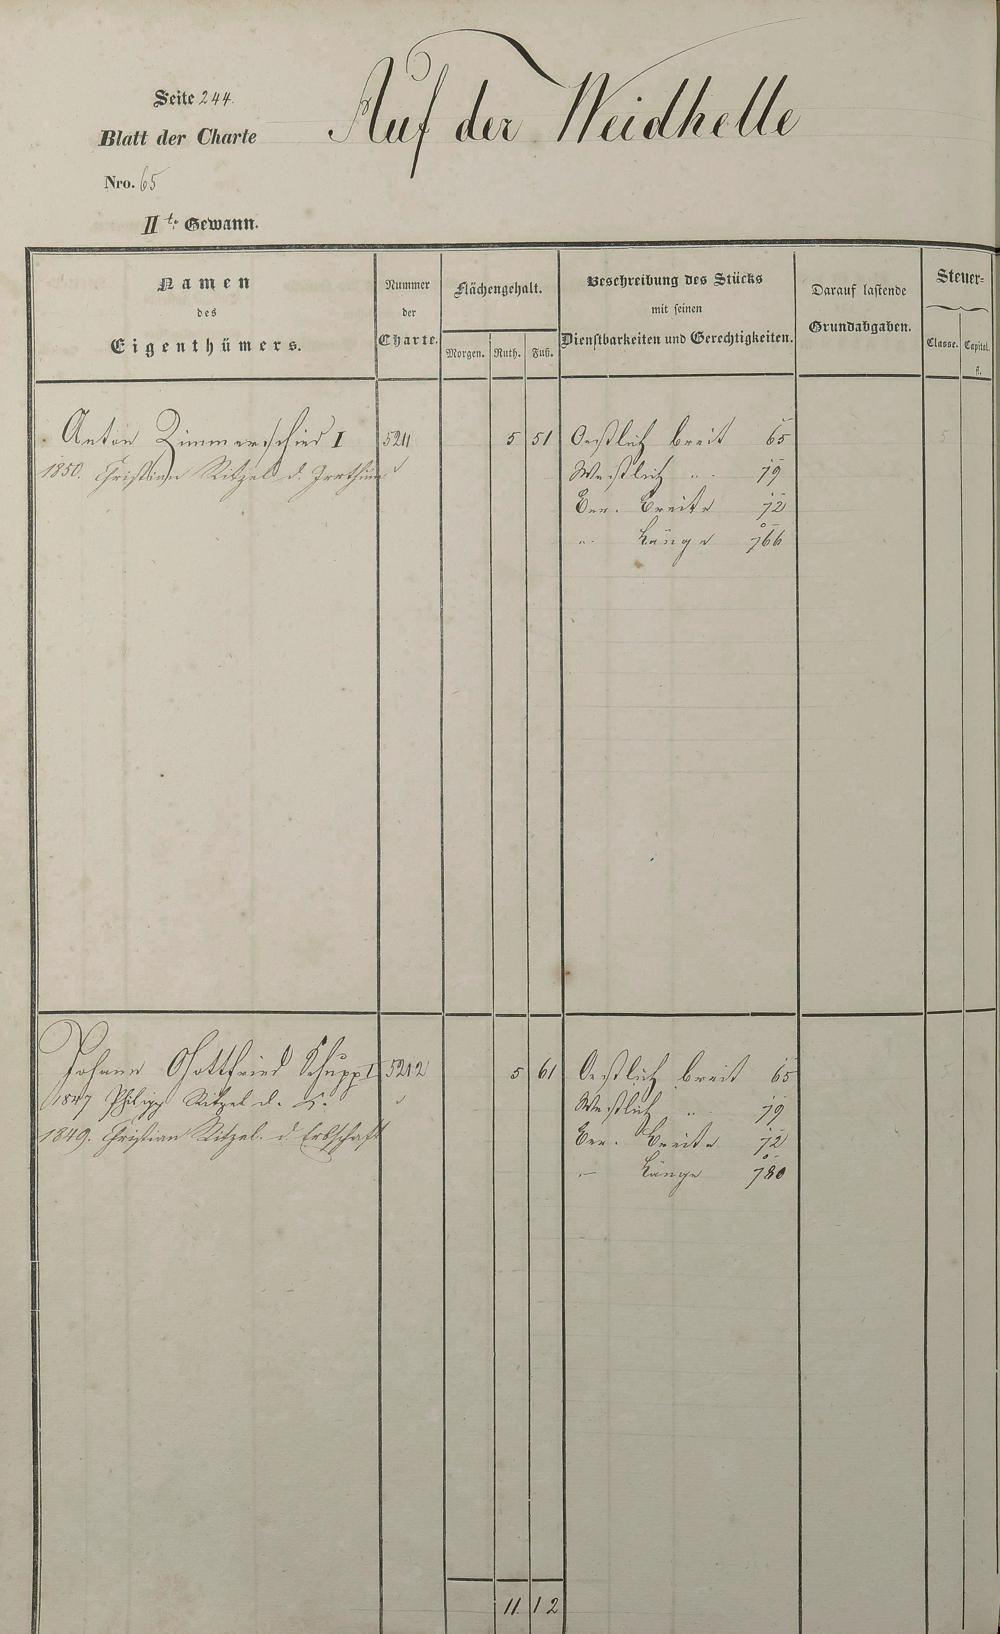 Auf der Weidhelle
Seite 244.
Blatt der Charte
Nro. 65
II te. Gewann.
Namen
des
Eigenthümers.
Nummer
der
Charte.
Flächengehalt.
Morgen.
Ruth.
Fuß.
Beschreibung des Stücks
mit seinen
Dienstbarkeiten und Gerechtigkeiten.
Darauf lastende
Grundabgaben.
Steuer-
Classe.
Capital.
fl.
Anton Zimmerschied I 5211 5 51 Oestlich breit 65 5
1850. Christian Ritzel d. Irrthum Westlich " 79
Ver. Breite 72
" Länge 766
Johann Gottfried Schupp I 5212 5 61 Oestlich breit 65
1847 Philipp Ritzel d. Westlich " 79
1849. Christian Ritzel. d. Erbschaft Ver. Breite 72
" Länge 780
11 12